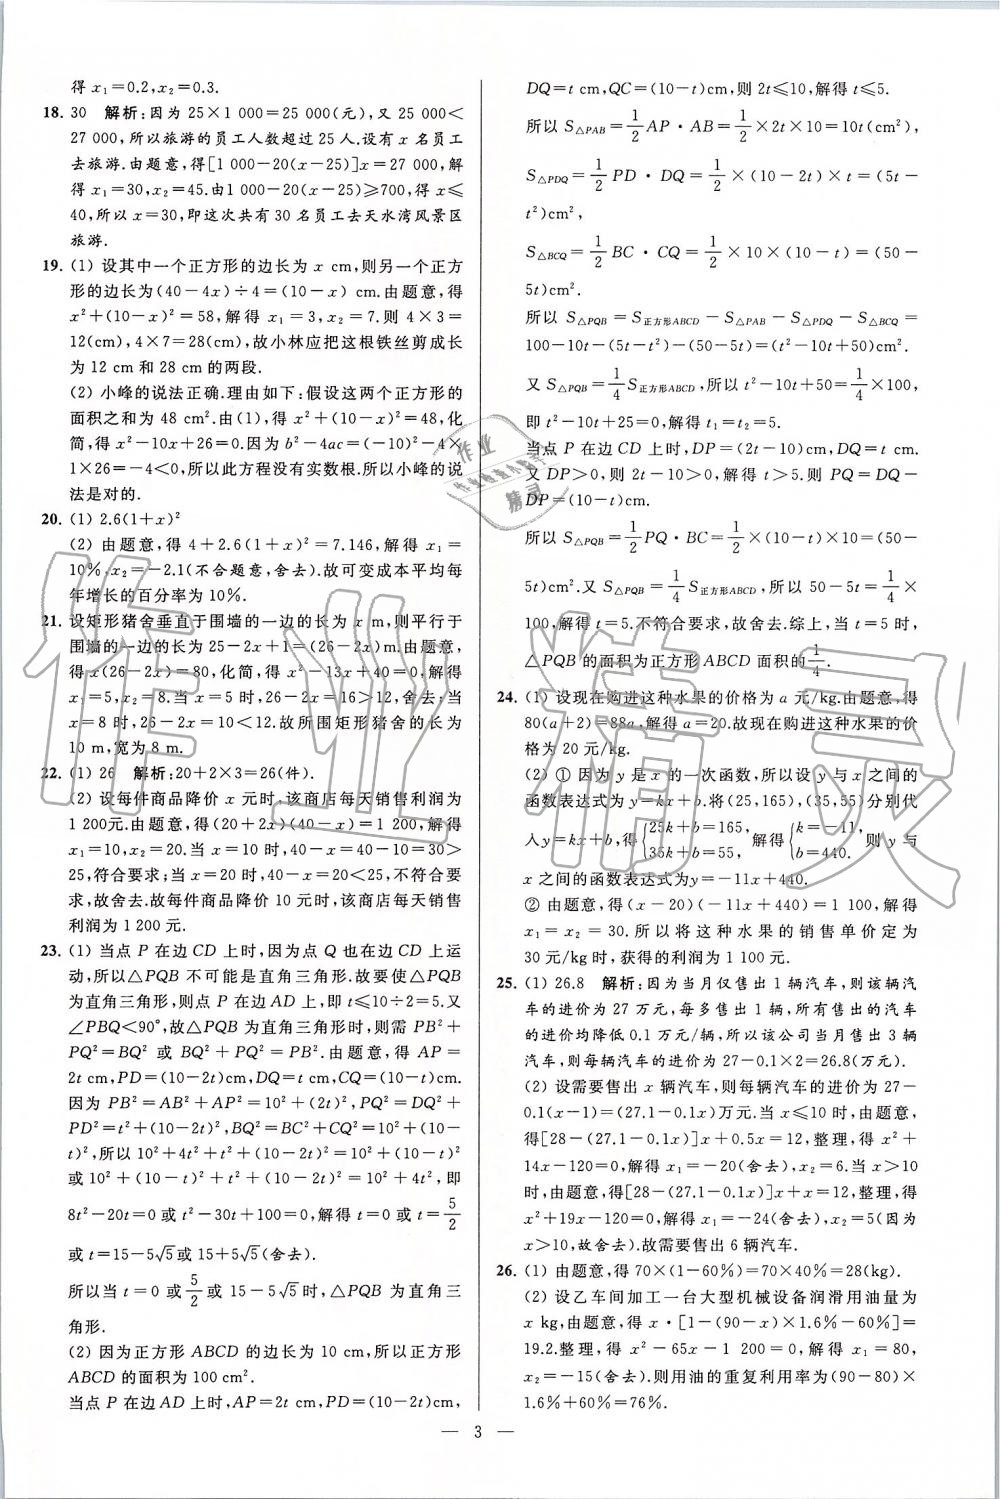 得 x₁=0.2,x₂=0.3.
18. 30 解析:因为 25×1 000=25 000(元),又 25 000<
27 000,所以旅游的员工人数超过 25 人.设有 x 名员工
去旅游.由题意,得[1 000-20(x-25)]x=27 000,解
得 x₁=30,x₂=45.由 1 000-20(x-25)≥700,得 x≤
40,所以 x=30,即这次共有 30 名员工去天水湾风景区
旅游.
19. (1) 设其中一个正方形的边长为 x cm,则另一个正方
形的边长为(40-4x)÷4=(10-x) cm.由题意,得
x²+(10-x)²=58,解得 x₁=3,x₂=7.则 4×3=
12(cm),4×7=28(cm),故小林应把这根铁丝剪成长
为 12 cm 和 28 cm 的两段.
(2) 小峰的说法正确.理由如下:假设这两个正方形的
面积之和为 48 cm².由(1),得 x²+(10-x)²=48,化
简,得 x²-10x+26=0.因为 b²-4ac=(-10)²-4×
1×26=-4<0,所以此方程没有实数根.所以小峰的说
法是对的.
20. (1) 2.6(1+x)²
(2) 由题意,得 4+2.6(1+x)²=7.146,解得 x₁=
10%,x₂=-2.1(不合题意,舍去).故可变成本平均每
年增长的百分率为 10%.
21. 设矩形猪舍垂直于围墙的一边的长为 x m,则平行于
围墙的一边的长为 25-2x+1=(26-2x)m.由题意,
得 x(26-2x)=80,化简,得 x²-13x+40=0,解得
x₁=5,x₂=8.当 x=5 时,26-2x=16>12,舍去;当
x=8 时,26-2x=10<12.故所围矩形猪舍的长为
10 m,宽为 8 m.
22. (1) 26 解析:20+2×3=26(件).
(2) 设每件商品降价 x 元时,该商店每天销售利润为
1 200元.由题意,得(20+2x)(40-x)=1 200,解得
x₁=10,x₂=20.当 x=10 时,40-x=40-10=30>
25,符合要求;当 x=20 时,40-x=20<25,不符合要
求,故舍去.故每件商品降价 10 元时,该商店每天销售
利润为 1 200 元.
23. (1) 当点 P 在边 CD 上时,因为点 Q 也在边 CD 上运
动,所以△PQB 不可能是直角三角形.故要使△PQB
为直角三角形,则点 P 在边 AD 上,即 t≤10÷2=5.又
∠PBQ<90°,故△PQB 为直角三角形时,则需 PB²+
PQ²=BQ² 或 BQ²+PQ²=PB².由题意,得 AP=
2t cm,PD=(10-2t)cm,DQ=t cm,CQ=(10-t)cm.
因为 PB²=AB²+AP²=10²+(2t)²,PQ²=DQ²+
PD²=t²+(10-2t)²,BQ²=BC²+CQ²=10²+(10-
t)²,所以 10²+4t²+t²+(10-2t)²=10²+(10-t)²
或 10²+(10-t)²+t²+(10-2t)²=10²+4t²,即
8t²-20t=0 或 t²-30t+100=0,解得 t=0 或 t=5/2
或 t=15-5√5或 15+5√5(舍去).
所以当 t=0 或5/2或 15-5√5时,△PQB 为直角三
角形.
(2) 因为正方形 ABCD 的边长为 10 cm,所以正方形
ABCD 的面积为 100 cm².
当点 P 在边AD 上时,AP=2t cm,PD=(10-2t)cm,
DQ=t cm,QC=(10-t)cm,则 2t≤10,解得 t≤5.
所以 S△PAB=1/2AP·AB=1/2×2t×10=10t(cm²),
S△PDQ=1/2PD·DQ=1/2×(10-2t)×t=(5t-
t²)cm²,
S△BCQ=1/2BC·CQ=1/2×10×(10-t)=(50-
5t)cm².
所以 S△PQB=S正方形ABCD-S△PAB-S△PDQ-S△BCQ=
100-10t-(5t-t²)-(50-5t)=(t²-10t+50)cm².
又 S△PQB=1/4S正方形ABCD,所以 t²-10t+50=1/4×100,
即 t²-10t+25=0,解得 t₁=t₂=5.
当点 P 在边CD 上时,DP=(2t-10)cm,DQ=t cm.
又 DP>0,则 2t-10>0,解得 t>5.则 PQ=DQ-
DP=(10-t)cm.
所以 S△PQB=1/2PQ·BC=1/2×(10-t)×10=(50-
5t)cm².又 S△PQB=1/4S正方形ABCD,所以 50-5t=1/4×
100,解得 t=5.不符合要求,故舍去.综上,当 t=5 时,
△PQB 的面积为正方形 ABCD 面积的1/4.
24. (1) 设现在购进这种水果的价格为 a 元/kg.由题意,得
80(a+2)=88a,解得 a=20.故现在购进这种水果的价
格为 20 元/kg.
(2) ① 因为 y 是 x 的一次函数,所以设 y 与 x 之间的
函数表达式为 y=kx+b.将(25,165),(35,55)分别代
入 y=kx+b,得{25k+b=165, 35k+b=55, 解得{k=-11, b=440. 则 y 与
x 之间的函数表达式为 y=-11x+440.
② 由题意,得(x-20)(-11x+440)=1 100,解得
x₁=x₂=30.所以将这种水果的销售单价定为
30 元/kg 时,获得的利润为 1 100 元.
25. (1) 26.8 解析:因为当月仅售出 1 辆汽车,则该辆汽
车的进价为 27 万元,每多售出 1 辆,所有售出的汽车
的进价均降低 0.1 万元/辆,所以该公司当月售出 3 辆
汽车,则每辆汽车的进价为 27-0.1×2=26.8(万元).
(2) 设需要售出 x 辆汽车,则每辆汽车的进价为 27-
0.1(x-1)=(27.1-0.1x)万元.当 x≤10 时,由题意,
得[28-(27.1-0.1x)]x+0.5x=12,整理,得 x²+
14x-120=0,解得 x₁=-20(舍去),x₂=6.当 x>10
时,由题意,得[28-(27.1-0.1x)]x+x=12,整理,得
x²+19x-120=0,解得 x₁=-24(舍去),x₂=5(因为
x>10,故舍去).故需要售出 6 辆汽车.
26. (1) 由题意,得 70×(1-60%)=70×40%=28(kg).
(2) 设乙车间加工一台大型机械设备润滑用油量为
x kg,由题意,得 x·[1-(90-x)×1.6%-60%]=
19.2.整理,得 x²-65x-1 200=0,解得 x₁=80,
x₂=-15(舍去).则用油的重复利用率为(90-80)×
1.6%+60%=76%.
— 3 —
作业精灵